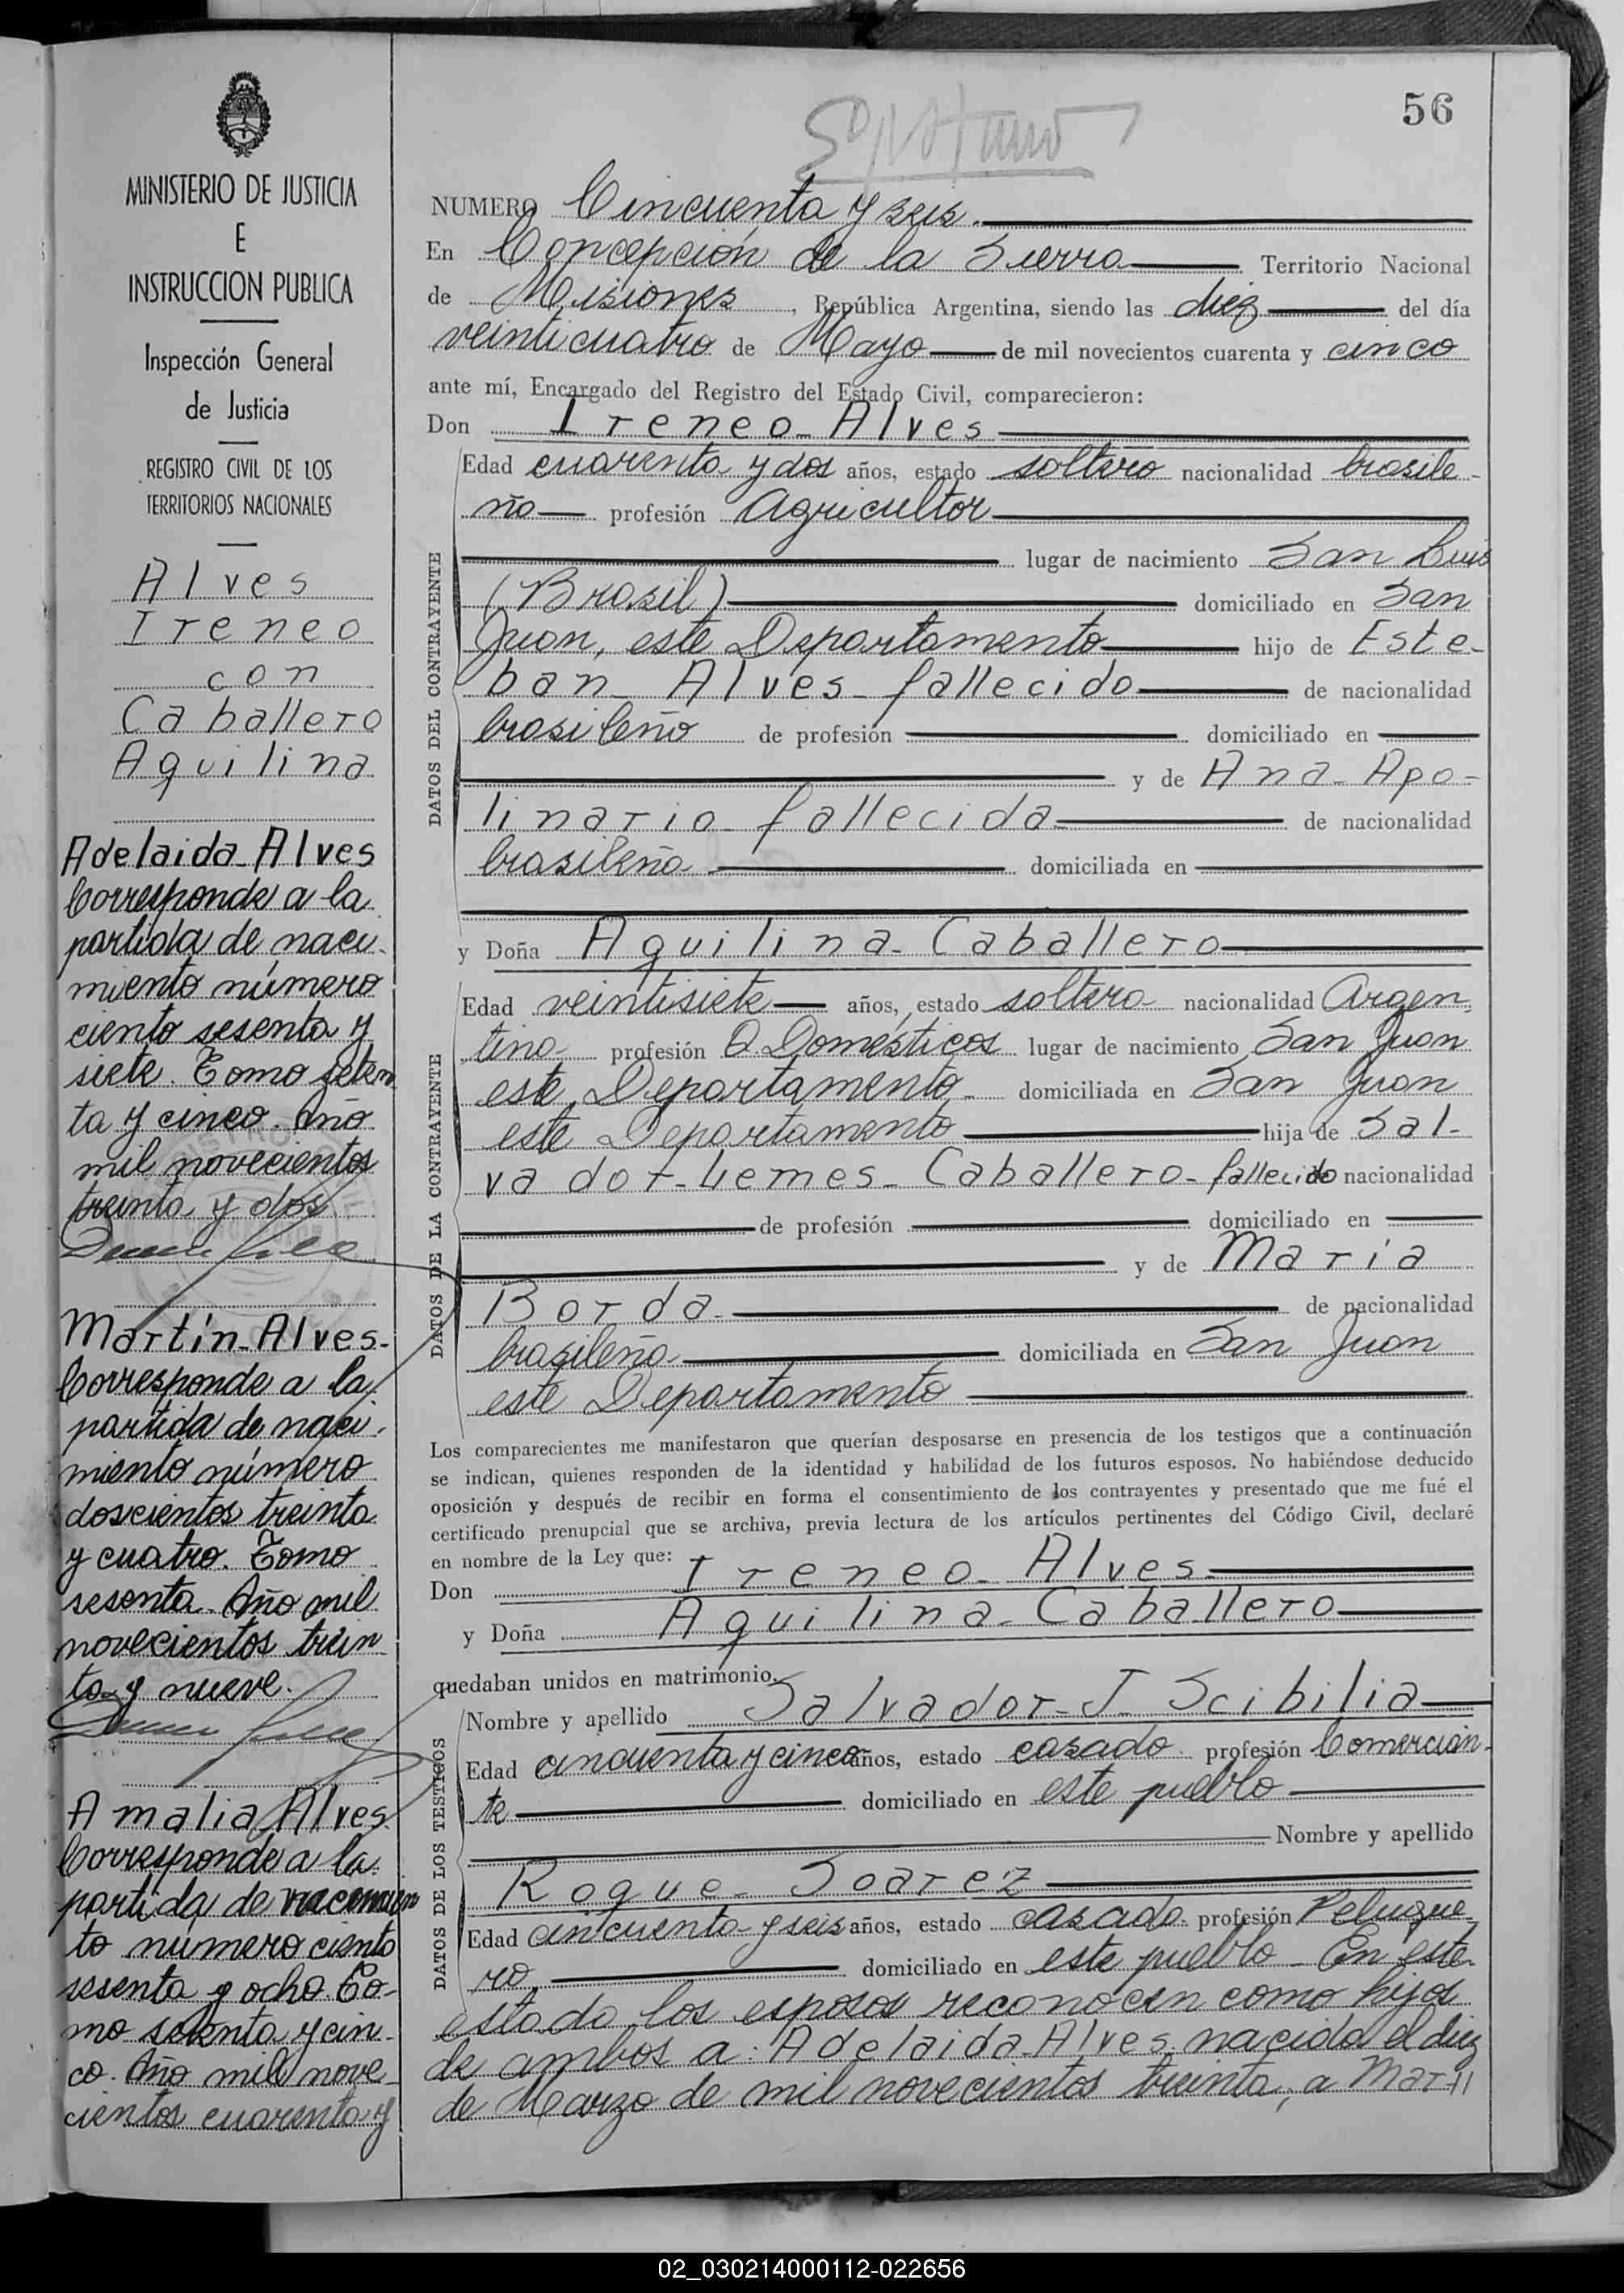 56
NUMERO Cincuenta y seis.
En Concepción de la Sierra Territorio Nacional
de Misiones, República Argentina, siendo las diez del día
veinticuatro de Mayo de mil novecientos cuarenta y cinco
ante mí, Encargado del Registro del Estado Civil, comparecieron:
Don Ireneo Alves
Edad cuarenta y dos años, estado soltero nacionalidad brasile-
ño profesión Agricultor
lugar de nacimiento San Luis
(Brasil) domiciliado en San
Juan, este Departamento hijo de Este-
ban Alves fallecido de nacionalidad
brasileño de profesión domiciliado en
y de Ana Apo-
linario fallecida de nacionalidad
brasileña domiciliada en
y Doña Aquilina Caballero
Edad veintisiete años, estado soltera nacionalidad Argen
tina profesión Q. Domésticos lugar de nacimiento San Juan
este Departamento domiciliada en San Juan
este Departamento hija de Sal-
vador Lemes Caballero fallecido nacionalidad
de profesión domiciliado en
y de Maria
Borda de nacionalidad
brasileña domiciliada en San Juan
este Departamento
DATOS DEL CONTRAYENTE
DATOS DE LA CONTRAYENTE
Los comparecientes me manifestaron que querían desposarse en presencia de los testigos que a continuación
se indican, quienes responden de la identidad y habilidad de los futuros esposos. No habiéndose deducido
oposición y después de recibir en forma el consentimiento de los contrayentes y presentado que me fué el
certificado prenupcial que se archiva, previa lectura de los artículos pertinentes del Código Civil, declaré
en nombre de la Ley que:
Don Ireneo Alves
y Doña Aquilina Caballero
quedaban unidos en matrimonio.
Nombre y apellido Salvador J Scibilia
Edad cincuenta y cinco años, estado casado profesión Comercian-
te domiciliado en este pueblo
Nombre y apellido
Roque Soarez
Edad cincuenta y seis años, estado casado profesión Peluque
ro domiciliado en este pueblo En este
estado los esposos reconocen como hijos
de ambos a: Adelaida Alves nacida el diez
de Marzo de mil novecientos treinta, a Marti
DATOS DE LOS TESTIGOS
MINISTERIO DE JUSTICIA
E
INSTRUCCION PUBLICA
Inspección General
de Justicia
REGISTRO CIVIL DE LOS
TERRITORIOS NACIONALES
Alves
Ireneo
con
Caballero
Aquilina
Adelaida Alves
Corresponde a la
partida de naci-
miento número
ciento sesenta y
siete. Tomo seten
ta y cinco. Año
mil novecientos
treinta y dos
Martín Alves-
Corresponde a la
partida de naci-
miento número
doscientos treinta
y cuatro. Tomo
sesenta. Año mil
novecientos trein
ta y nueve.
Amalia Alves
Corresponde a la
partida de nacimien
to número ciento
sesenta y ocho To-
mo setenta y cin-
co. Año mil nove-
cientos cuarenta y
02_030214000112-022656